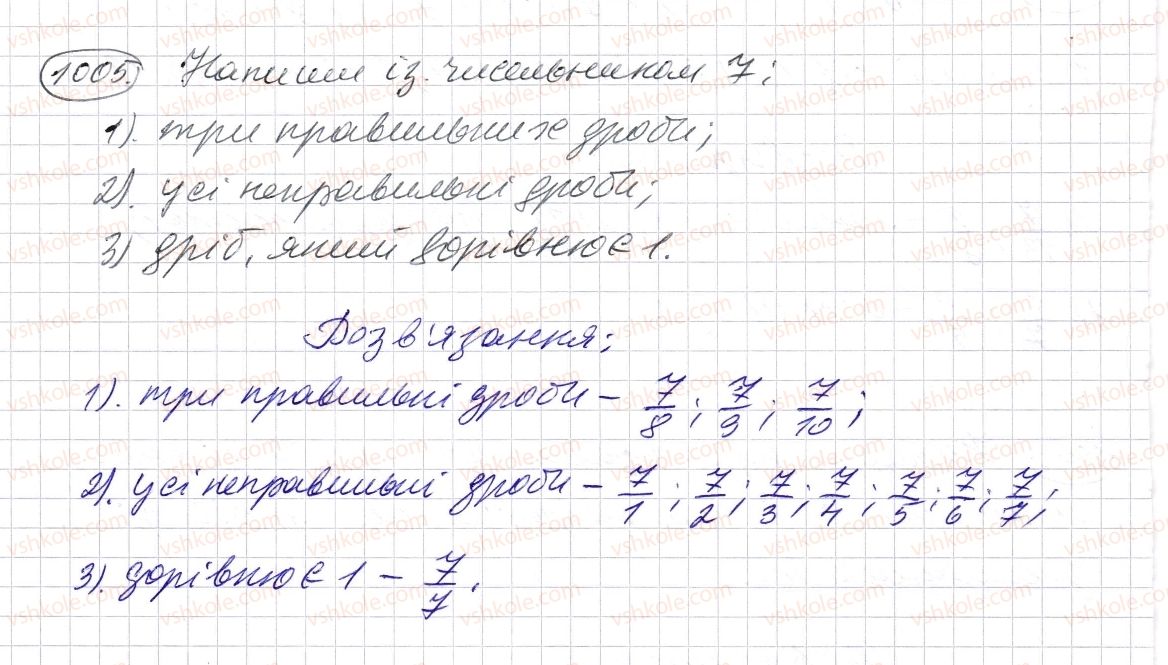 1005. Напиши із чисельником 7:
1). три правильних дроби;
2). усі неправильні дроби;
3) дріб, який дорівнює 1.
Розв'язання:
1). три правильні дроби – 7/8; 7/9; 7/10;
2). усі неправильні дроби – 7/1; 7/2; 7/3; 7/4; 7/5; 7/6; 7/7;
3). дорівнює 1 – 7/7.